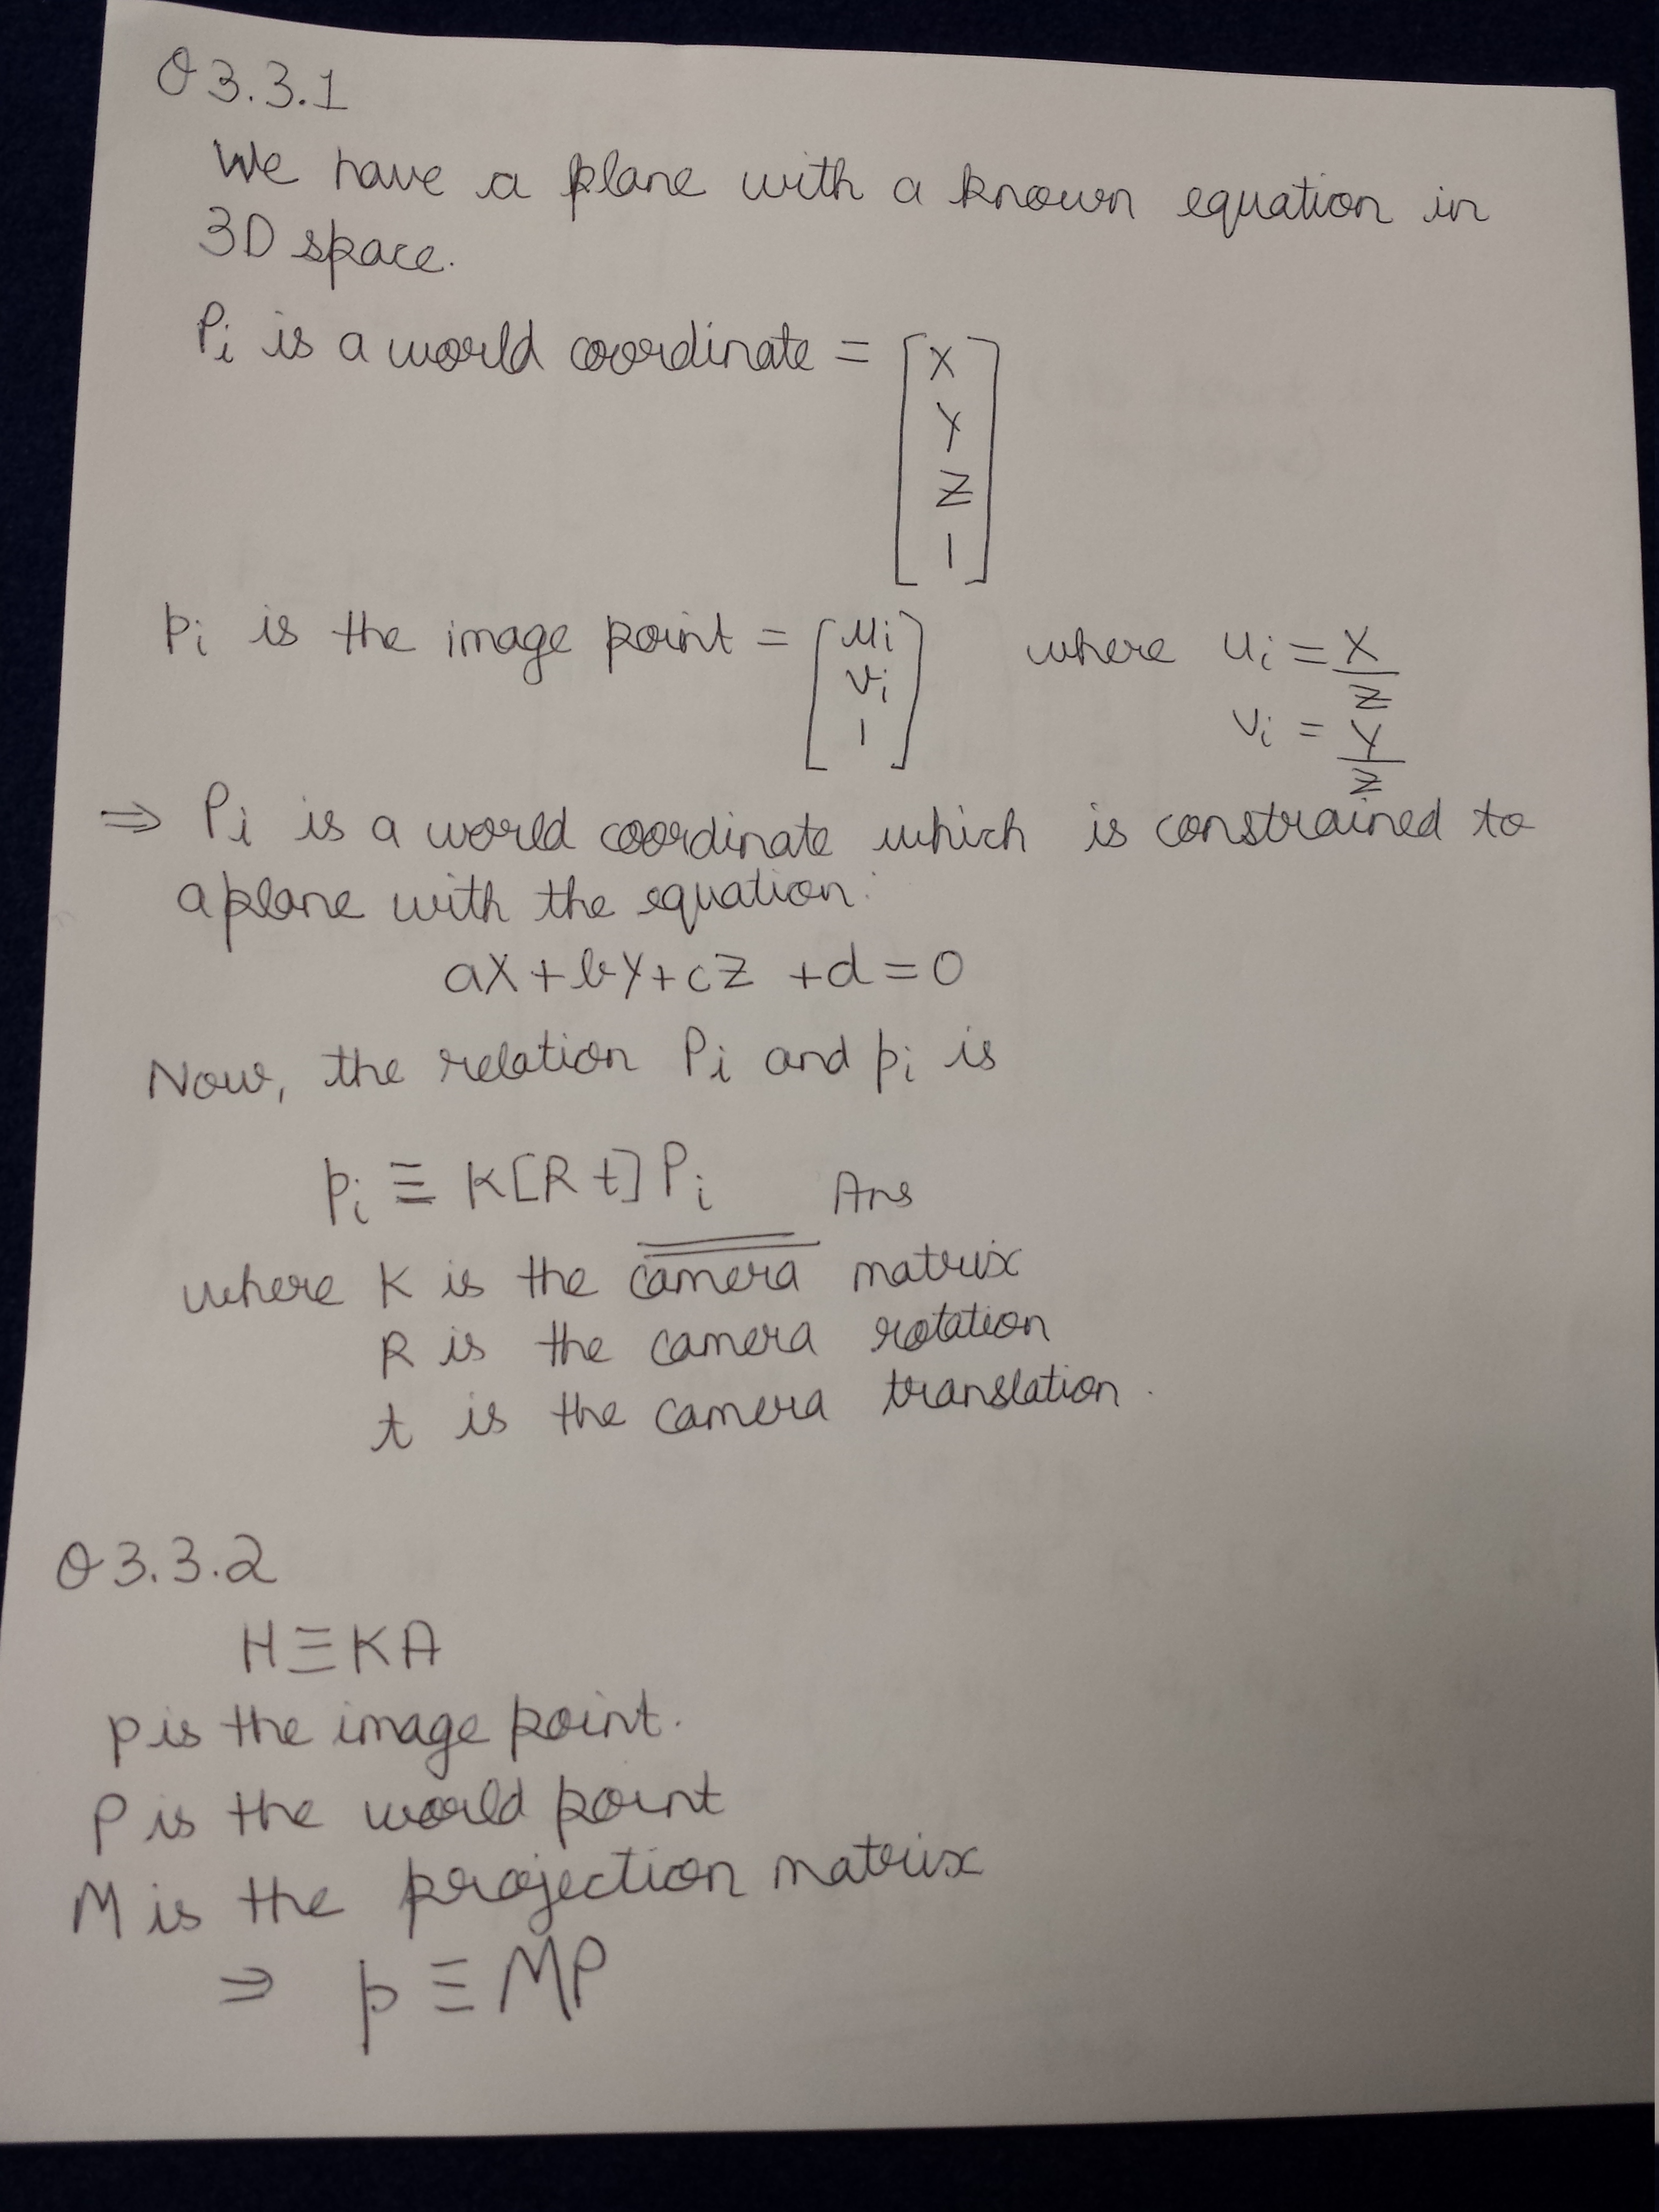 Q3.3.1
We have a plane with a known equation in
3D space.
Pi is a world coordinate = [X
Y
Z
1]
pi is the image point = [ui
vi
1] where ui = X/Z
vi = Y/Z
⇒ Pi is a world coordinate which is constrained to
a plane with the equation:
aX+bY+cZ +d=0
Now, the relation Pi and pi is
pi ≡ K[R t] Pi Ans
where K is the camera matrix
R is the camera rotation
t is the camera translation.
Q3.3.2
H≡KA
p is the image point.
P is the world point
M is the projection matrix
⇒ p ≡ MP